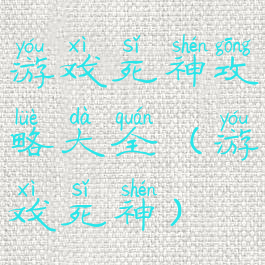 yóu xì sǐ shén gōng
游戏死神攻
lüè dà quán yóu
略大全（游
xì sǐ shén
戏死神）